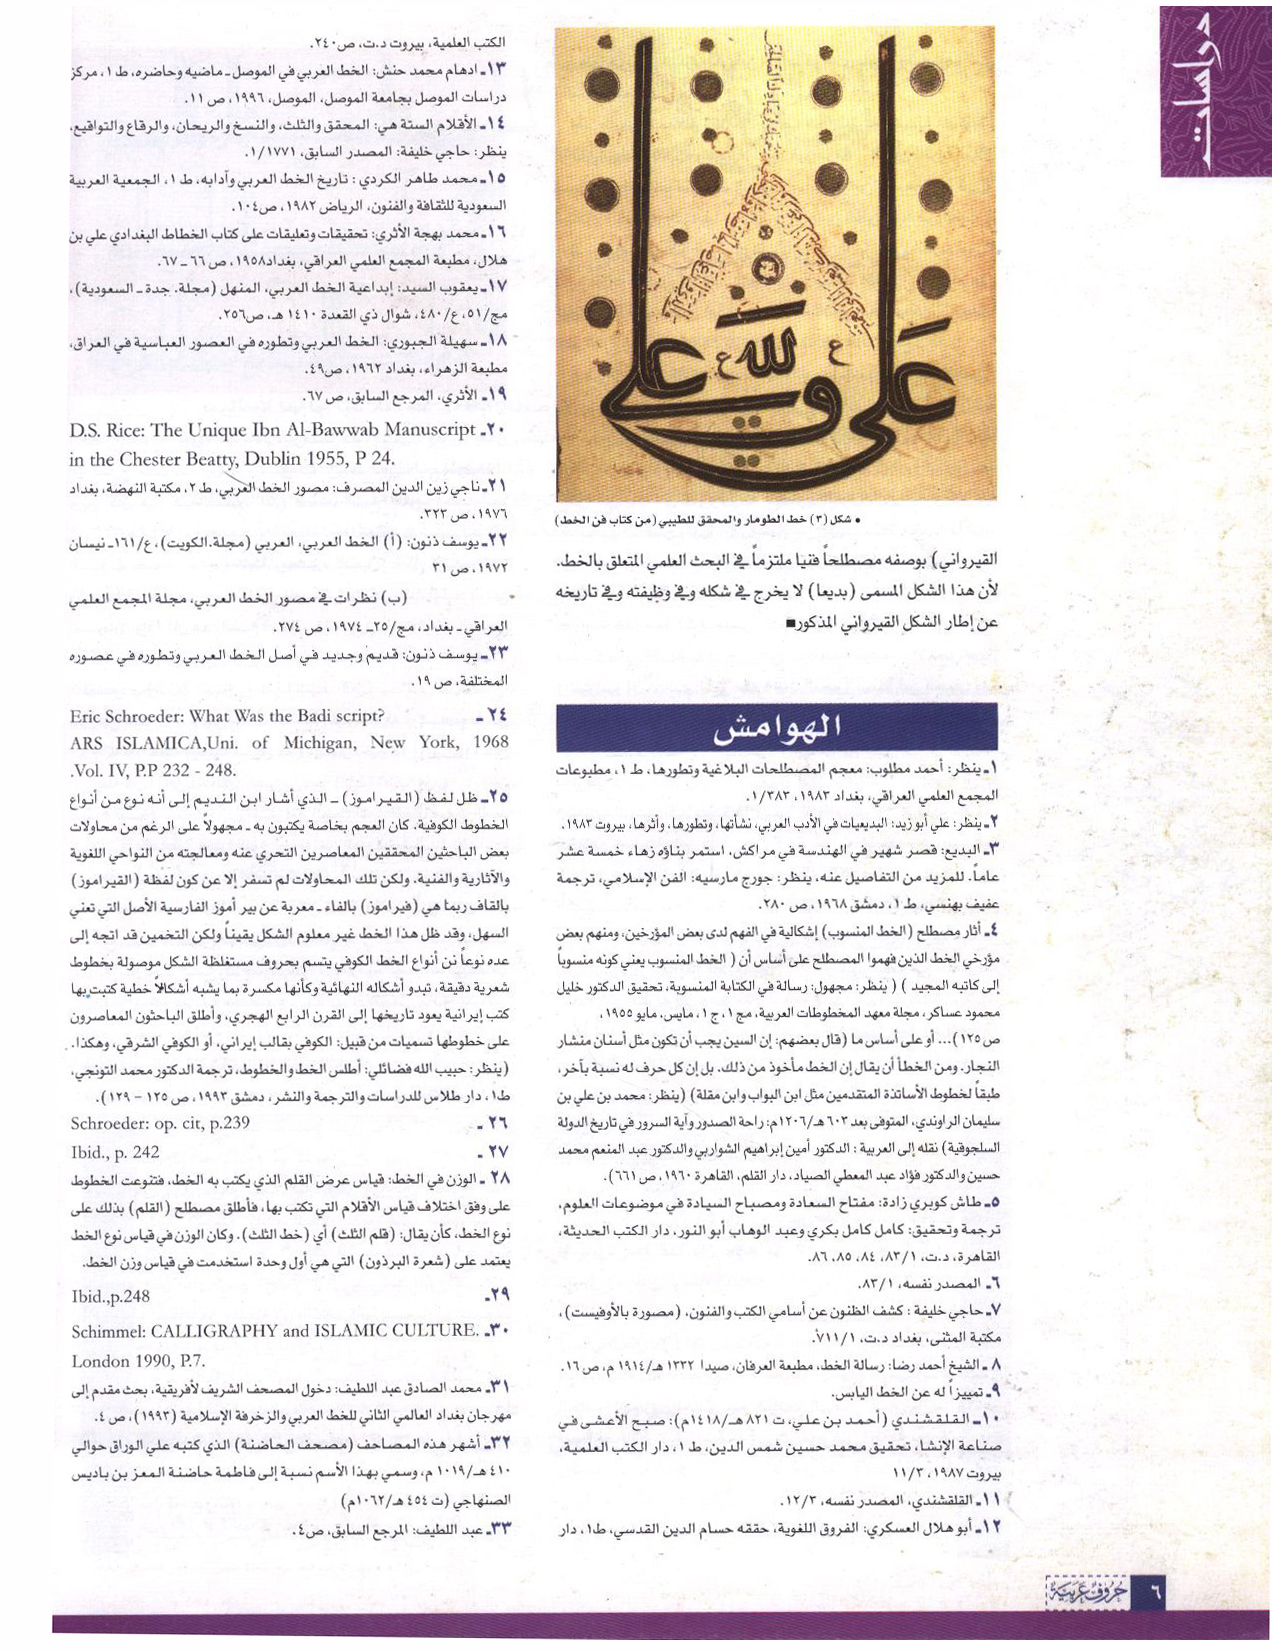 دراسات
• شكل (٣) خط الطومار والمحقق للطيبي (من كتاب فن الخط)
القيرواني) بوصفه مصطلحاً فنيا ملتزماً في البحث العلمي المتعلق بالخط.
لأن هذا الشكل المسمى (بديعا) لا يخرج في شكله وفي وظيفته وفي تاريخه
عن إطار الشكل القيرواني المذكور■
الهوامش
١ـ ينظر: أحمد مطلوب: معجم المصطلحات البلاغية وتطورها، ط ١، مطبوعات
المجمع العلمي العراقي، بغداد ١٩٨٣، ١/٣٨٣.
٢ـ ينظر: علي أبو زيد: البديعيات في الأدب العربي، نشأتها، وتطورها، وأثرها، بيروت ١٩٨٣.
٣ـ البديع: قصر شهير في الهندسة في مراكش، استمر بناؤه زهاء خمسة عشر
عاماً. للمزيد من التفاصيل عنه، ينظر: جورج مارسيه: الفن الإسلامي، ترجمة
عفيف بهنسي، ط ١، دمشق ١٩٦٨، ص ٢٨٠.
٤ـ أثار مصطلح (الخط المنسوب) إشكالية في الفهم لدى بعض المؤرخين، ومنهم بعض
مؤرخي الخط الذين فهموا المصطلح على أساس أن ( الخط المنسوب يعني كونه منسوباً
إلى كاتبه المجيد ) ( ينظر: مجهول: رسالة في الكتابة المنسوبة، تحقيق الدكتور خليل
محمود عساكر، مجلة معهد المخطوطات العربية، مج ١، ج ١، مايس، مايو ١٩٥٥،
ص ١٢٥)... أو على أساس ما (قال بعضهم: إن السين يجب أن تكون مثل أسنان منشار
النجار. ومن الخطأ أن يقال إن الخط مأخوذ من ذلك. بل إن كل حرف له نسبة بآخر،
طبقاً لخطوط الأساتذة المتقدمين مثل ابن البواب وابن مقلة) (ينظر: محمد بن علي بن
سليمان الراوندي، المتوفى بعد ٦٠٣ هـ/١٢٠٦م: راحة الصدور وآية السرور في تاريخ الدولة
السلجوقية) نقله إلى العربية : الدكتور أمين إبراهيم الشواربي والدكتور عبد المنعم محمد
حسين والدكتور فؤاد عبد المعطي الصياد، دار القلم، القاهرة ١٩٦٠، ص ٦٦١).
٥ـ طاش كوبري زادة: مفتاح السعادة ومصباح السيادة في موضوعات العلوم،
ترجمة وتحقيق: كامل كامل بكري وعبد الوهاب أبو النور، دار الكتب الحديثة،
القاهرة، د.ت، ٨٣/١، ٨٤، ٨٥، ٨٦.
٦ـ المصدر نفسه، ٨٣/١.
٧ـ حاجي خليفة : كشف الظنون عن أسامي الكتب والفنون، (مصورة بالأوفيست)،
مكتبة المثنى، بغداد د.ت، ٧١١/١.
٨ ـ الشيخ أحمد رضا: رسالة الخط، مطبعة العرفان، صيدا ١٣٣٢ هـ/١٩١٤ م، ص ١٦.
٩ـ تمييزاً له عن الخط اليابس.
١٠ـ القلقشندي (أحمد بن علي، ت ٨٢١ هـ/١٤١٨م): صبح الأعشى في
صناعة الإنشا، تحقيق محمد حسين شمس الدين، ط ١، دار الكتب العلمية،
بيروت ١٩٨٧، ١١/٣
١١ـ القلقشندي، المصدر نفسه، ١٢/٣.
١٢ـ أبو هلال العسكري: الفروق اللغوية، حققه حسام الدين القدسي، ط١، دار
الكتب العلمية، بيروت د.ت، ص ٢٤٠.
١٣ـ ادهام محمد حنش: الخط العربي في الموصل ـ ماضيه وحاضره، ط ١، مركز
دراسات الموصل بجامعة الموصل، الموصل، ١٩٩٦، ص ١١.
١٤ـ الأقلام الستة هي: المحقق والثلث، والنسخ والريحان، والرقاع والتواقيع،
ينظر: حاجي خليفة: المصدر السابق، ١/١٧٧١.
١٥ـ محمد طاهر الكردي : تاريخ الخط العربي وآدابه، ط ١، الجمعية العربية
السعودية للثقافة والفنون، الرياض ١٩٨٢، ص١٠٤.
١٦ـ محمد بهجة الأثري: تحقيقات وتعليقات على كتاب الخطاط البغدادي علي بن
هلال، مطبعة المجمع العلمي العراقي، بغداد١٩٥٨، ص ٦٦ ـ ٦٧.
١٧ـ يعقوب السيد: إبداعية الخط العربي، المنهل (مجلة. جدة ـ السعودية)،
مج/٥١، ع/٤٨٠، شوال ذي القعدة ١٤١٠ هـ، ص٢٥٦.
١٨ـ سهيلة الجبوري: الخط العربي وتطوره في العصور العباسية في العراق،
مطبعة الزهراء، بغداد ١٩٦٢، ص٤٩.
١٩ـ الأثري، المرجع السابق، ص ٦٧.
٢٠ـ D.S. Rice: The Unique Ibn Al-Bawwab Manuscript
in the Chester Beatty, Dublin 1955, P 24.
٢١ـ ناجي زين الدين المصرف: مصور الخط العربي، ط ٢، مكتبة النهضة، بغداد
١٩٧٦، ص ٣٢٣.
٢٢ـ يوسف ذنون: (أ) الخط العربي، العربي (مجلة.الكويت)، ع/١٦١ـ نيسان
١٩٧٢، ص ٣١
(ب) نظرات في مصور الخط العربي، مجلة المجمع العلمي
العراقي ـ بغداد، مج/٢٥ـ ١٩٧٤، ص ٢٧٤.
٢٣ـ يوسف ذنون: قديم وجديد في أصل الخط العربي وتطوره في عصوره
المختلفة، ص ١٩.
٢٤ ـ Eric Schroeder: What Was the Badi script?
ARS ISLAMICA,Uni. of Michigan, New York, 1968
.Vol. IV, P.P 232 - 248.
٢٥ـ ظل لفظ (القيراموز) ـ الذي أشار ابن النديم إلى أنه نوع من أنواع
الخطوط الكوفية. كان العجم بخاصة يكتبون به ـ مجهولاً على الرغم من محاولات
بعض الباحثين المحققين المعاصرين التحري عنه ومعالجته من النواحي اللغوية
والآثارية والفنية. ولكن تلك المحاولات لم تسفر إلا عن كون لفظة (القيراموز)
بالقاف ربما هي (فيراموز) بالفاء ـ معربة عن بير أموز الفارسية الأصل التي تعني
السهل، وقد ظل هذا الخط غير معلوم الشكل يقيناً ولكن التخمين قد اتجه إلى
عده نوعاً نن أنواع الخط الكوفي يتسم بحروف مستغلظة الشكل موصولة بخطوط
شعرية دقيقة، تبدو أشكاله النهائية وكأنها مكسرة بما يشبه أشكالاً خطية كتبت بها
كتب إيرانية يعود تاريخها إلى القرن الرابع الهجري، وأطلق الباحثون المعاصرون
على خطوطها تسميات من قبيل: الكوفي بقالب إيراني، أو الكوفي الشرقي، وهكذا.
(ينظر: حبيب الله فضائلي: أطلس الخط والخطوط، ترجمة الدكتور محمد التونجي،
ط١، دار طلاس للدراسات والترجمة والنشر، دمشق ١٩٩٣، ص ١٢٥ – ١٢٩).
٢٦ ـ Schroeder: op. cit, p.239
٢٧ ـ Ibid., p. 242
٢٨ ـ الوزن في الخط: قياس عرض القلم الذي يكتب به الخط، فتنوعت الخطوط
على وفق اختلاف قياس الأقلام التي تكتب بها، فأطلق مصطلح (القلم) بذلك على
نوع الخط، كأن يقال: (قلم الثلث) أي (خط الثلث). وكان الوزن في قياس نوع الخط
يعتمد على (شعرة البرذون) التي هي أول وحدة استخدمت في قياس وزن الخط.
٢٩ـ Ibid.,p.248
٣٠ـ Schimmel: CALLIGRAPHY and ISLAMIC CULTURE.
London 1990, P.7.
٣١ـ محمد الصادق عبد اللطيف: دخول المصحف الشريف لأفريقية، بحث مقدم إلى
مهرجان بغداد العالمي الثاني للخط العربي والزخرفة الإسلامية (١٩٩٣)، ص ٤.
٣٢ـ أشهر هذه المصاحف (مصحف الحاضنة) الذي كتبه علي الوراق حوالي
٤١٠ هـ/١٠١٩ م، وسمي بهذا الأسم نسبة إلى فاطمة حاضنة المعز بن باديس
الصنهاجي (ت ٤٥٤ هـ/١٠٦٢م)
٣٣ـ عبد اللطيف: المرجع السابق، ص٤.
حروف عربية
٦